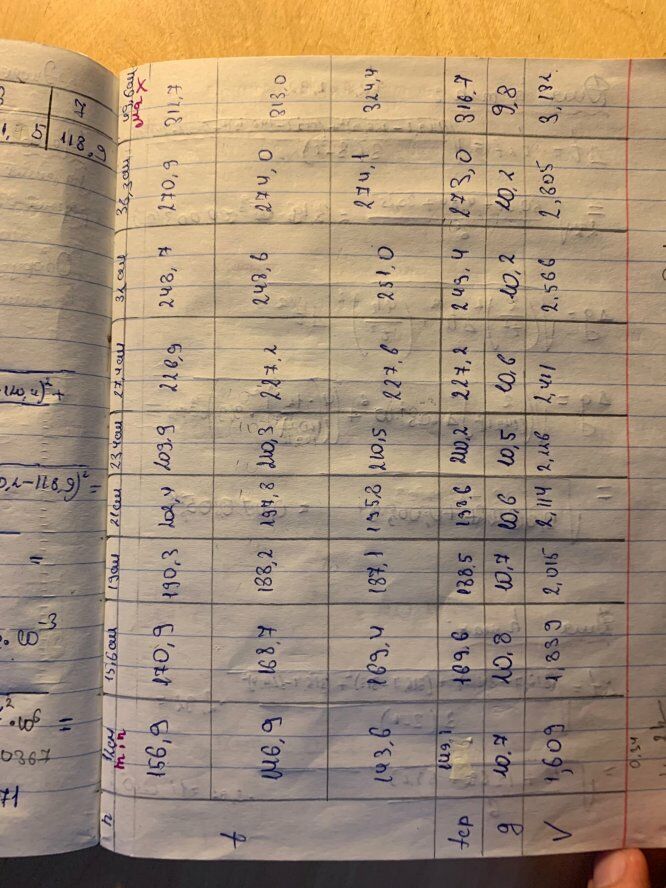 5 118,9
)²+
-118,9)² =
=
·10⁻³
=
0367
71
h min 15,6см 19см 21см 23,4см 27,4см 32см 49,6см max
156,9 170,9 190,3 202,4 209,9 226,9 248,7 270,9 312,7
t 146,9 168,7 188,2 197,8 210,3 227,2 248,6 274,0 313,0
143,6 169,4 187,1 195,8 210,5 227,6 251,0 274,1 324,4
tср 149,1 169,6 188,5 198,6 210,2 227,2 249,4 273,0 316,7
g 10,7 10,8 10,7 10,6 10,5 10,6 10,2 10,2 9,8
V 1,609 1,839 2,015 2,114 2,216 2,411 2,566 2,805 3,132
0,34